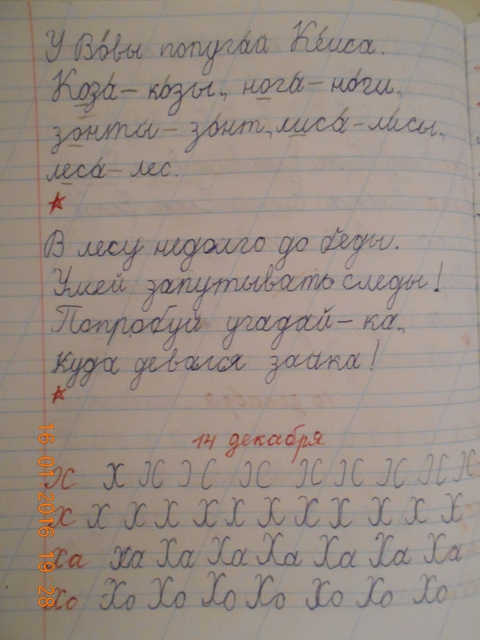 У Во́вы попуга́й Ке́ша.
Коза́ – ко́зы, нога́ – но́ги,
зонты́ – зо́нт, лиса́ – ли́сы,
леса́ – лес.
В лесу недолго до беды.
Умей запутывать следы!
Попробуй угадай – ка,
куда девался зайка!
14 декабря
Х Х Х Х Х Х Х Х Х Х
Х Х Х Х Х Х Х Х Х Х Х
Ха Ха Ха Ха Ха Ха Ха Ха
Хо Хо Хо Хо Хо Хо Хо Хо
16/01/2016 19:28